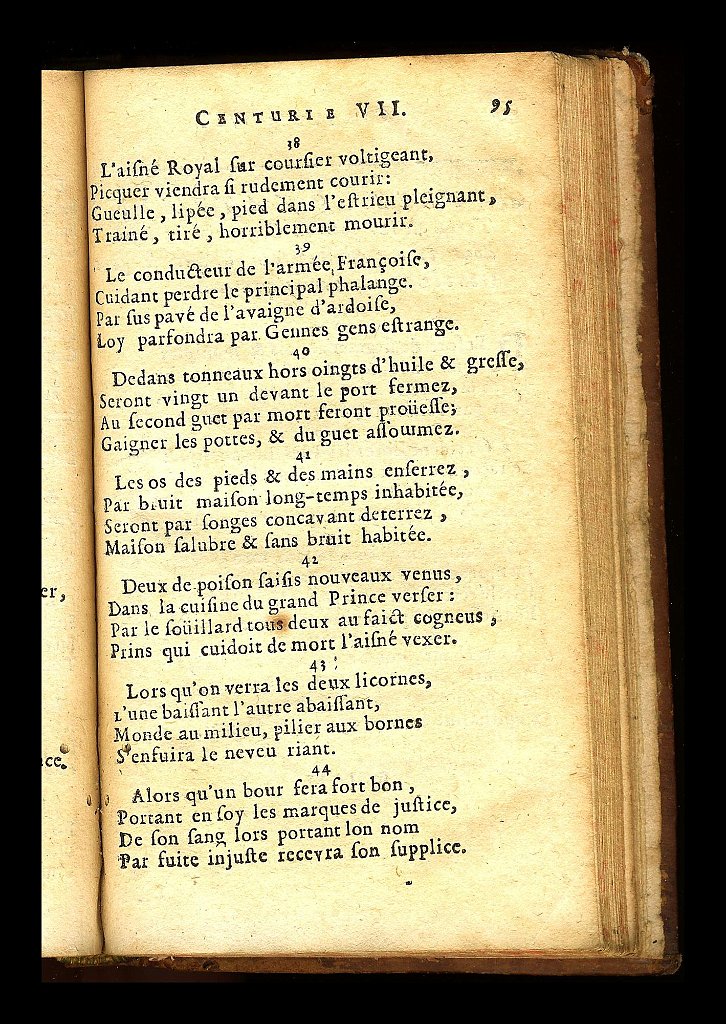 CENTURIE VII. 95
38
L'aiſné Royal ſur courſier voltigeant,
Picquer viendra ſi rudement courir:
Gueulle, lipée, pied dans l'eſtrieu pleignant,
Traîné, tiré, horriblement mourir.
39
Le conducteur de l'armée Françoiſe,
Cuidant perdre le principal phalange.
Par ſus pavé de l'avaigne d'ardoiſe,
Loy parfondra par Gennes gens eſtrange.
40
Dedans tonneaux hors oingts d'huile & greſſe,
Seront vingt un devant le port fermez,
Au ſecond guet par mort feront proüeſſe;
Gaigner les pottes, & du guet aſſommez.
41
Les os des pieds & des mains enſerrez,
Par bruit maiſon long-temps inhabitée,
Seront par ſonges concavant deterrez,
Maiſon ſalubre & ſans bruit habitée.
42
Deux de poiſon ſaiſis nouveaux venus,
Dans la cuiſine du grand Prince verſer:
Par le ſoüillard tous deux au faict cogneus,
Prins qui cuidoit de mort l'aiſné vexer.
43
Lors qu'on verra les deux licornes,
L'une baiſſant l'autre abaiſſant,
Monde au milieu, pilier aux bornes
S'enfuira le neveu riant.
44
Alors qu'un bour ſera fort bon,
Portant en ſoy les marques de juſtice,
De ſon ſang lors portant lon nom
Par fuite injuſte recevra ſon ſupplice.
er,
ce.